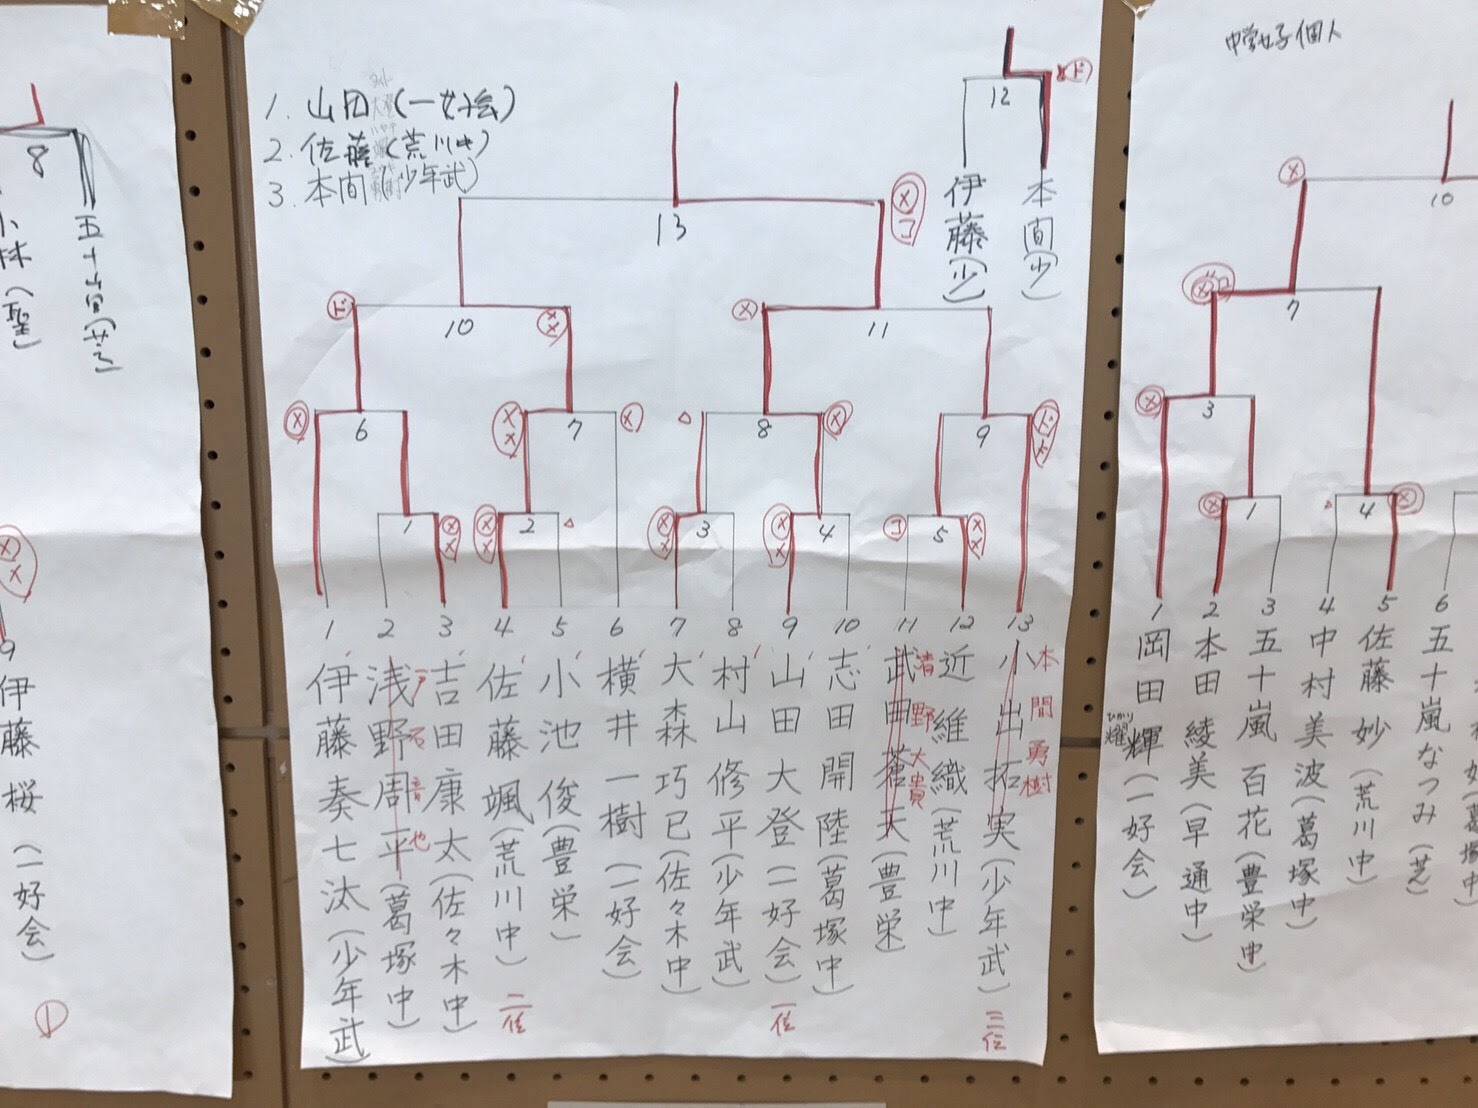 8
五十嵐(芝)
小林(聖)
9
伊藤 桜 (一好会)
1. 山田 (一好会)
2. 佐藤 (荒川中)
3. 本間 (少年武)
12
伊藤(少)
本間(少)
13
10
11
6
7
8
9
1
2
3
4
5
1 伊藤 奏七汰 (少年武)
2 浅野 周平 (葛塚中)
3 吉田 康太 (佐々木中)
4 佐藤 颯 (荒川中) 二位
5 小池 俊 (豊栄)
6 横井 一樹 (一好会)
7 大森 巧巳 (佐々木中)
8 村山 修平 (少年武)
9 山田 大登 (一好会) 一位
10 志田 開陸 (葛塚中)
11 武田 蒼天 (豊栄)
清野 大貴
12 近 維織 (荒川中)
13 小出 拓実 (少年武) 三位
本間 勇樹
中学女子個人
10
7
3
1
4
1 岡田 輝 (一好会)
ひかり
耀
2 本田 綾美 (早通中)
3 五十嵐 百花 (豊栄中)
4 中村 美波 (葛塚中)
5 佐藤 妙 (荒川中)
6 五十嵐 なつみ (芝)